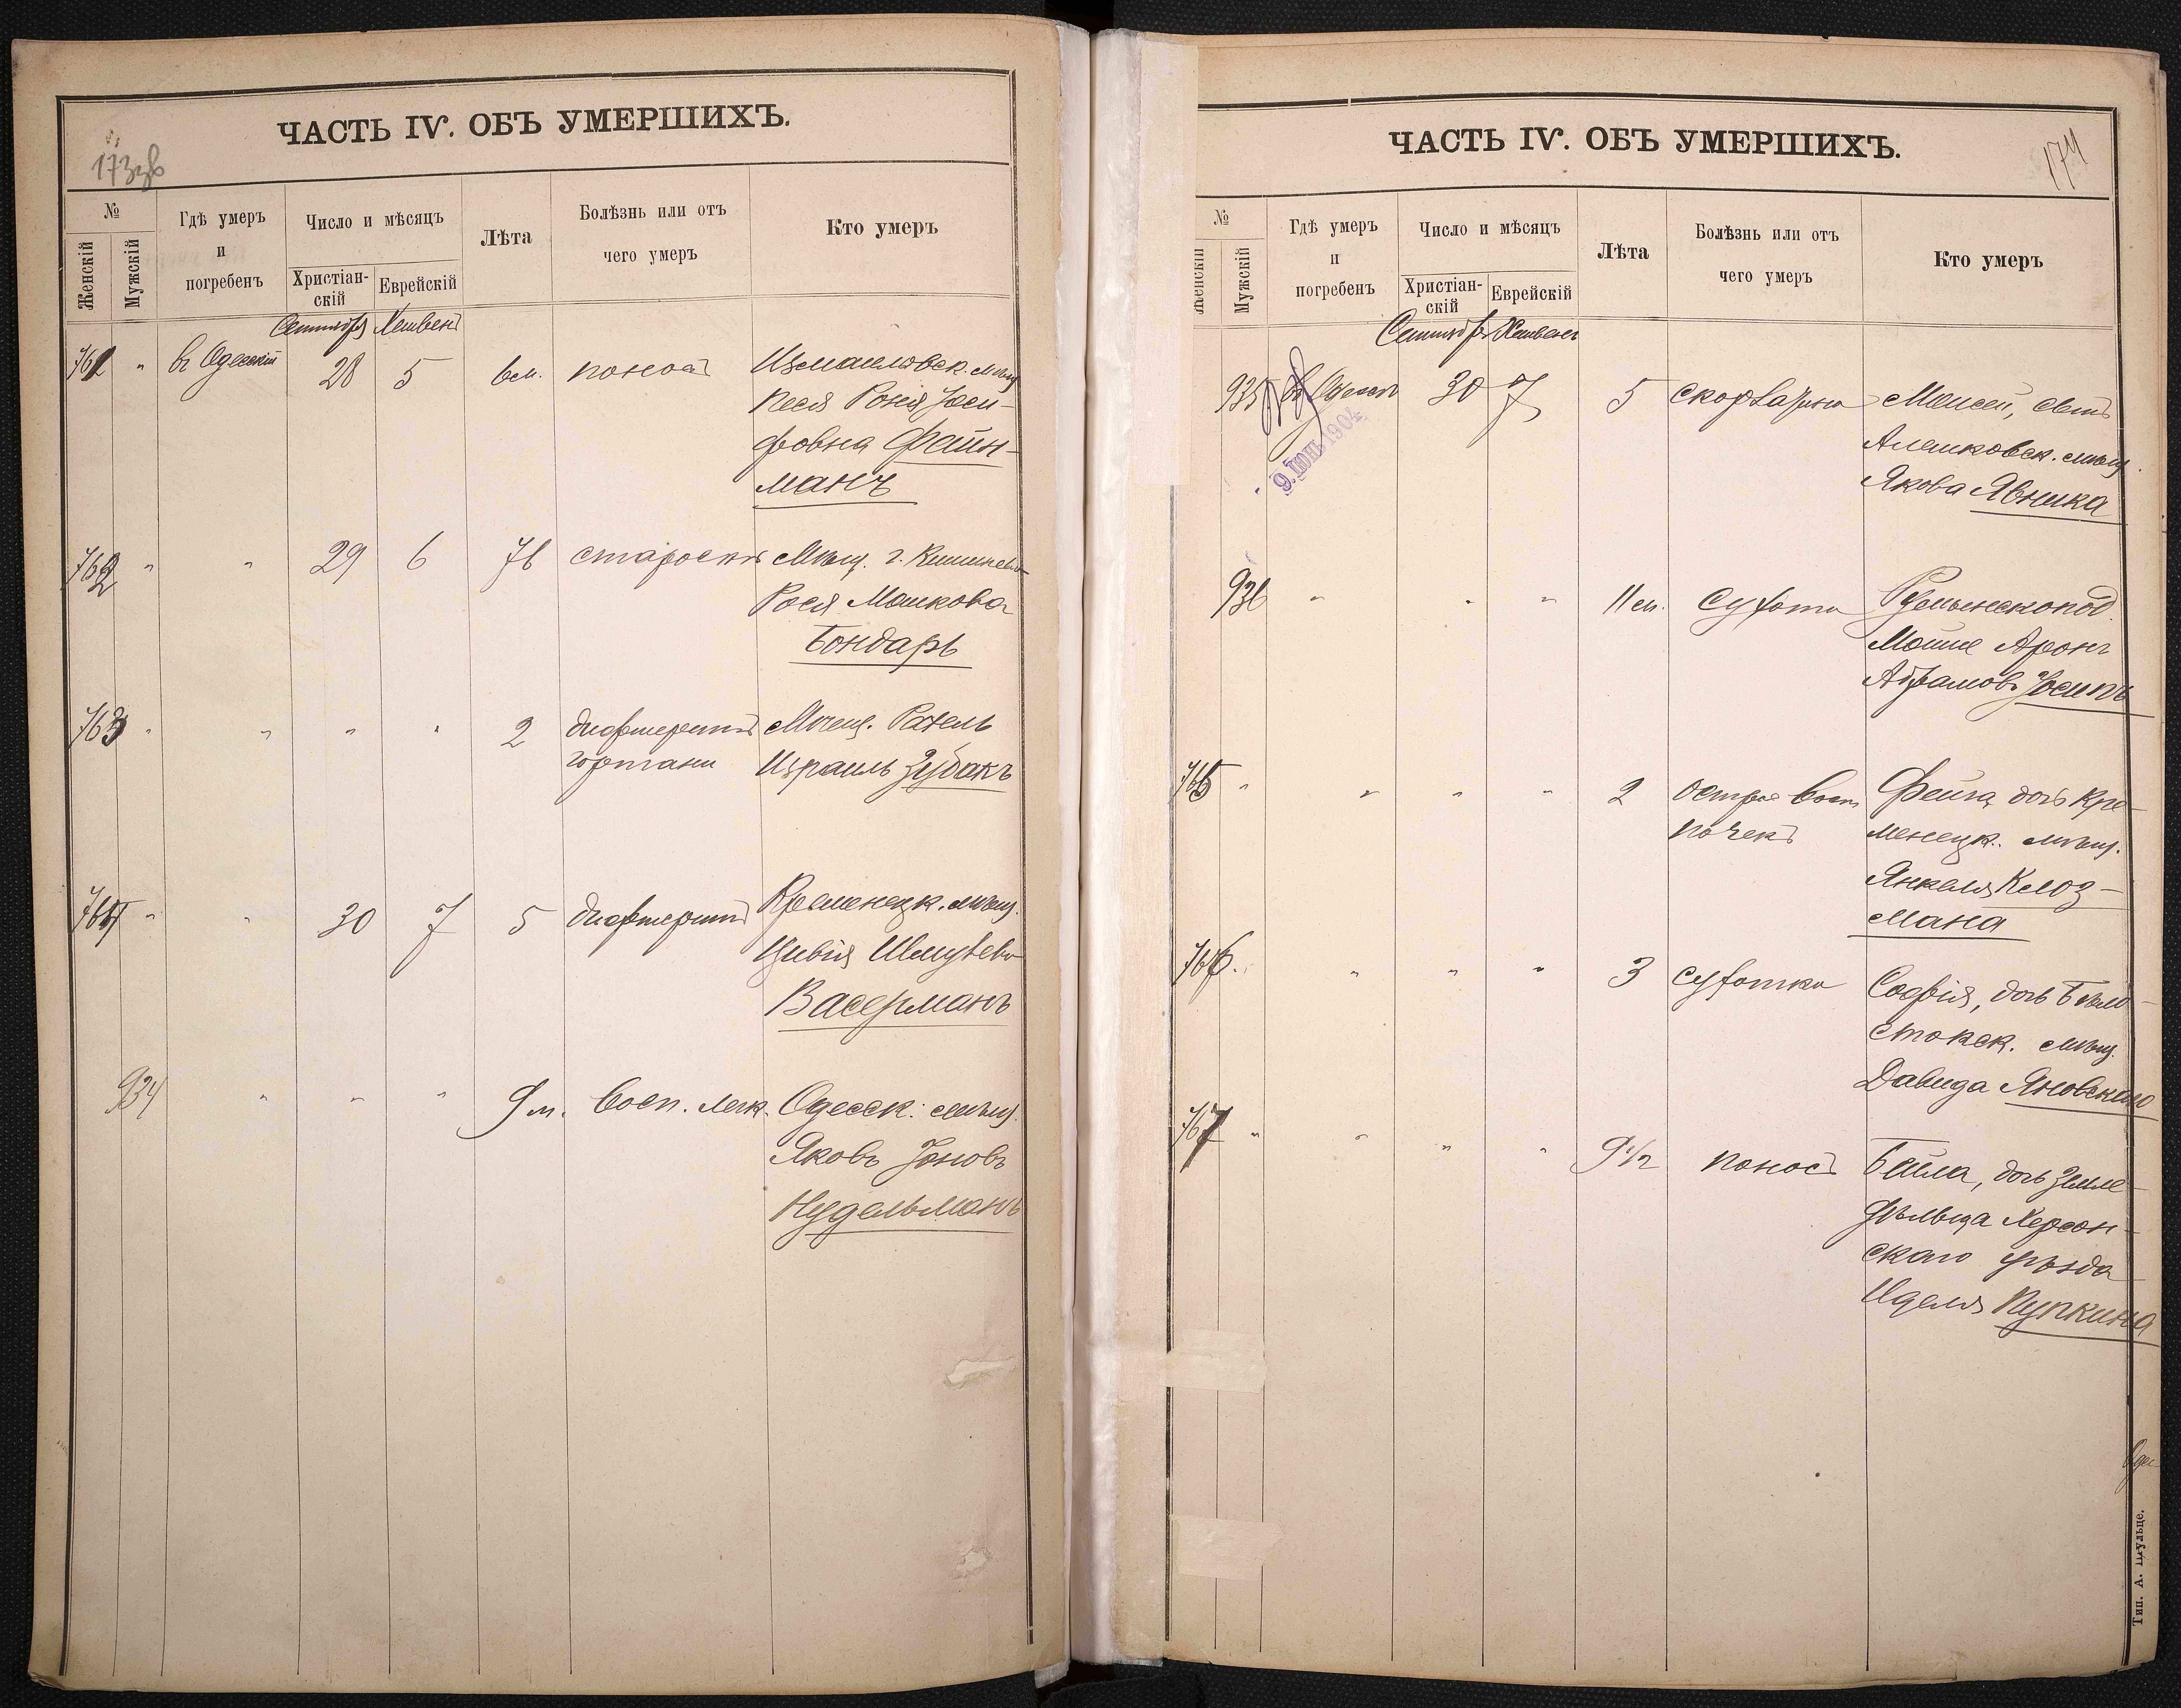 ЧАСТЬ IV. ОБЪ УМЕРШИХЪ.
173зв
№
Женскій
Мужскій
Гдѣ умеръ
и
погребенъ
Число и мѣсяцъ
Христіан-
скій
Еврейскій
Лѣта
Болѣзнь или отъ
чего умеръ
Кто умеръ
761 " въ 28 5 6 м. поносъ Измаиловск. мѣщ
Песя Іоси-
фовна Фейн-
манъ
762 " " 29 6 76 старость Мѣщ. г. Кишинева
Рося Мошкова
Бондарь
763 " " " " 2 дифтеритъ Мѣщ. Рахель
гортани Израиль Зубакъ
764 " " 30 7 5 дифтеритъ Кременецк. мѣщ.
Цивія Шмулева
Васерманъ
934 " " " 9 м. Восп. легк. Одесск. мѣщ.
Яковъ Іоновъ
Нудельманъ
ЧАСТЬ IV. ОБЪ УМЕРШИХЪ.
174
№
Женскій
Мужскій
Гдѣ умеръ
и
погребенъ
Число и мѣсяцъ
Христіан-
скій
Еврейскій
Лѣта
Болѣзнь или отъ
чего умеръ
Кто умеръ
935 30 7 5 скорлатина Моисей, сынъ
Алешковск. мѣщ.
Якова Явника
9. ІЮНЬ 1904
936 " " " 11 м. Румынскопод.
Мошке Аронъ
Абрамовъ Іосипъ
765 " " " " 2 острое восп
почекъ
Фейга дочь Кре-
менецк. мѣщ.
Янкеля Клоз-
мана
766. " " " 3 сухотка София, дочь Бѣло-
стокск. мѣщ.
Давида Яновскаго
767 " " " " 9 1/2 поносъ Бейла, дочь Земле-
дѣльца Херсон-
скаго уѣзда
Иделя Пупкина
Тип. А. Шульце.